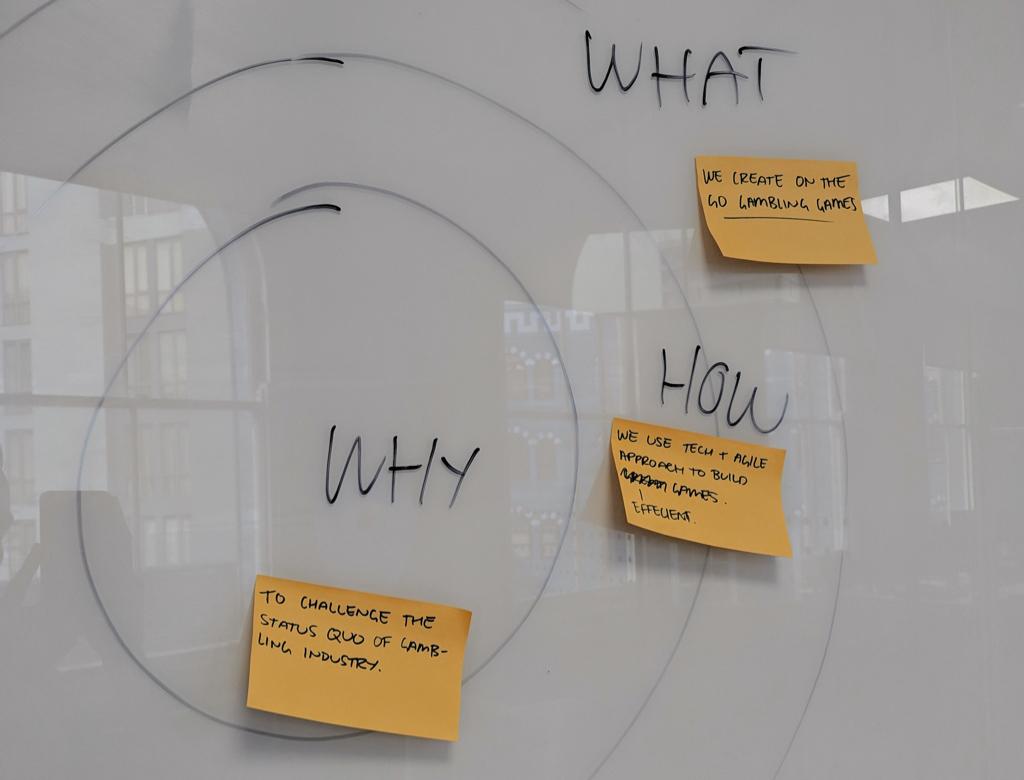 WHAT
WE CREATE ON THE
GO GAMBLING GAMES
HOW
WE USE TECH + AGILE
APPROACH TO BUILD
GAMES.
EFFECIENT.
WHY
TO CHALLENGE THE
STATUS QUO OF GAMB-
LING INDUSTRY.